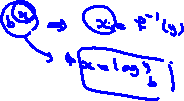 b^x ⇒ x = f⁻¹(y)
x = log_b y